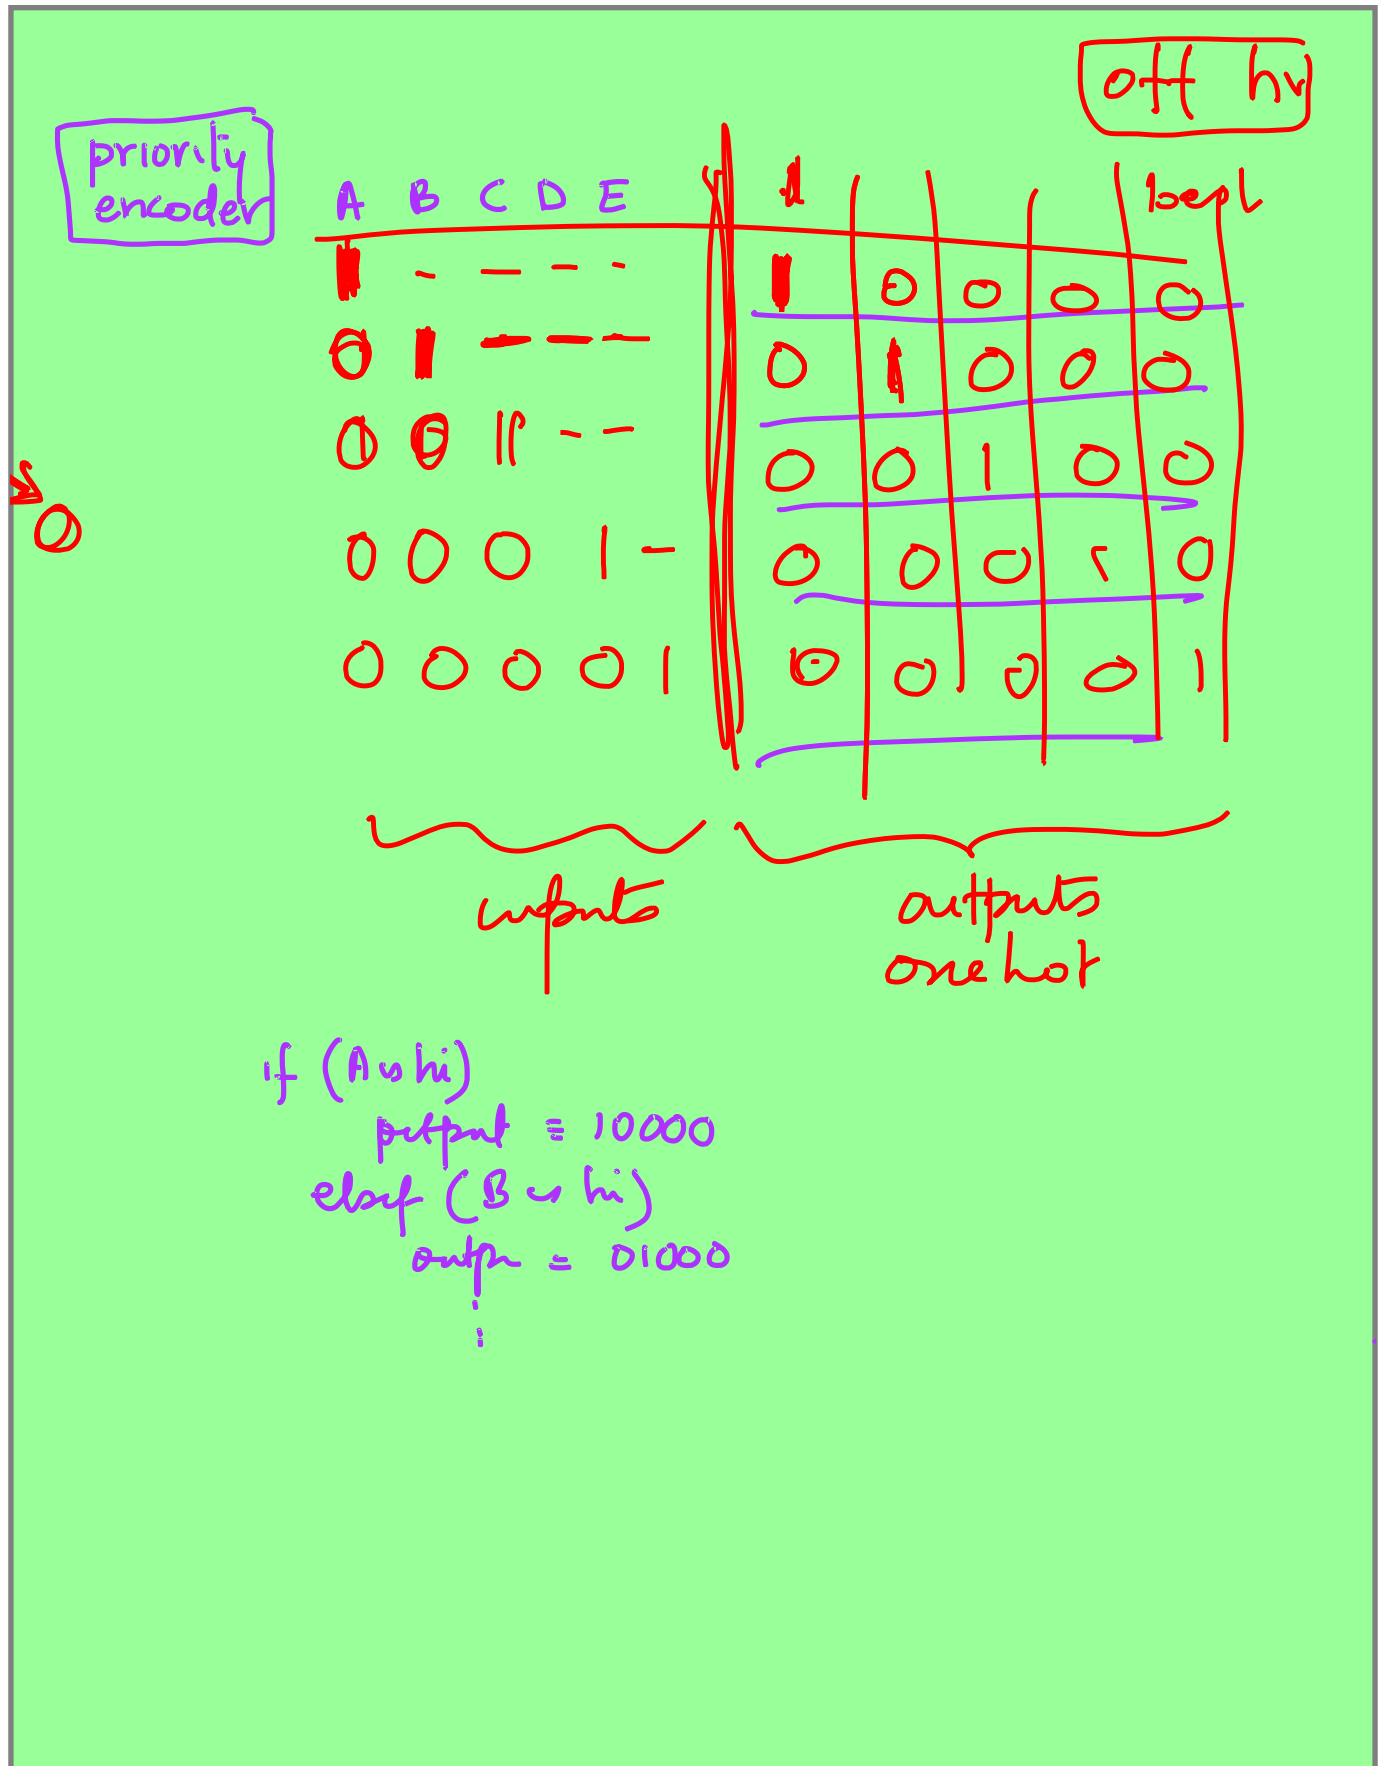 off hr
priority
encoder
A B C D E
1 - - - - 1 0 0 0 0
0 1 - - - 0 1 0 0 0
0 0 1 - - 0 0 1 0 0
0
0 0 0 1 - 0 0 0 1 0
0 0 0 0 1 0 0 0 0 1
inputs outputs
one hot
if (A is hi)
output = 10000
elseif (B is hi)
outp = 01000